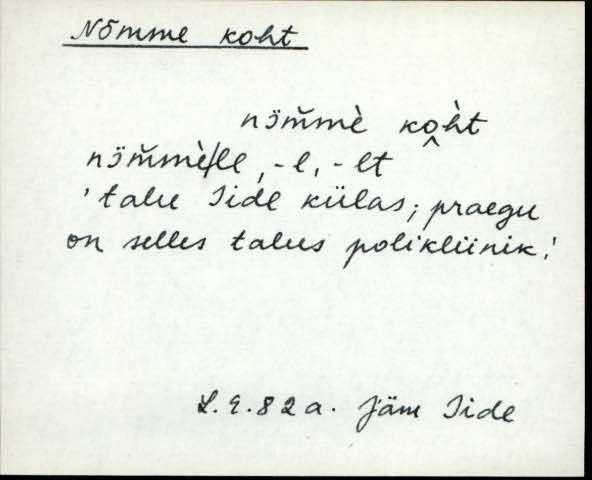 Nõmme koht
nɔ̈m̆mè ko̭h̀t
nɔ̈m̆mè/le, -l, -lt
'talu Iide külas; praegu
on selles talus polikliinik.'
L.E.82a. Jäm Iide